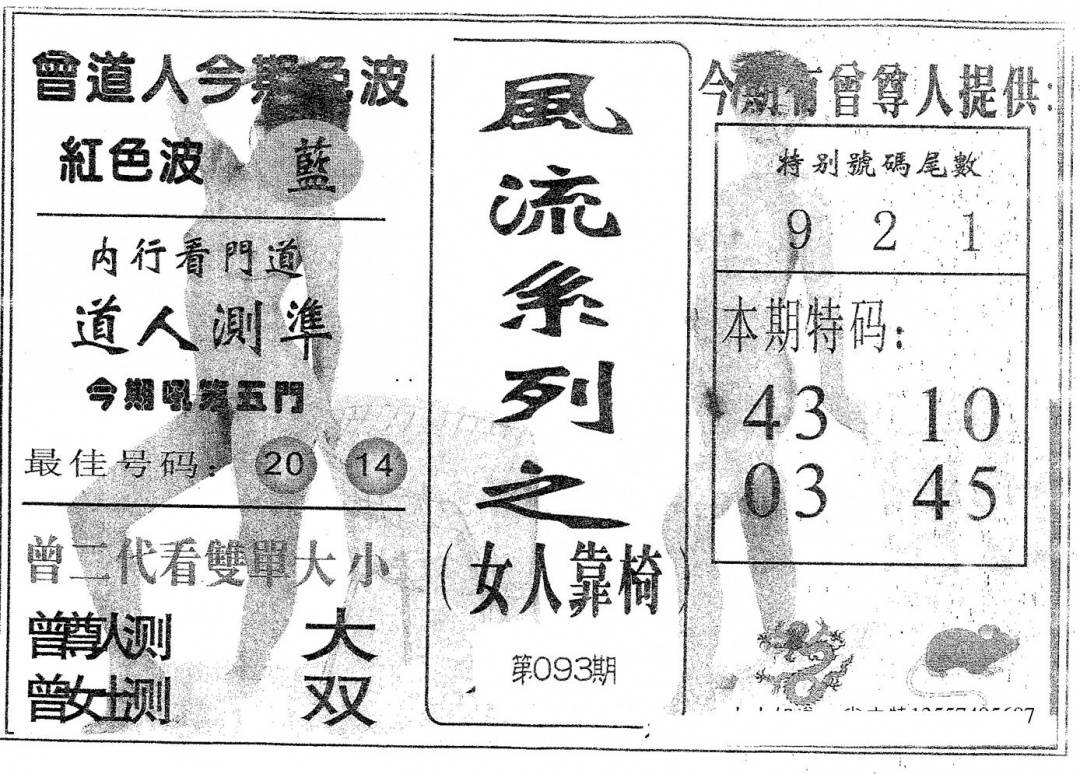 曾道人今期色波
紅色波 藍
内行看門道
道人測準
今期吼第五門
最佳号码：20 14
曾二代看雙單大小
曾尊人测 大
曾女士测 双
風流系列之
（女人靠椅）
第093期
今期有曾尊人提供：
特别號碼尾數
9 2 1
本期特码：
43 10
03 45